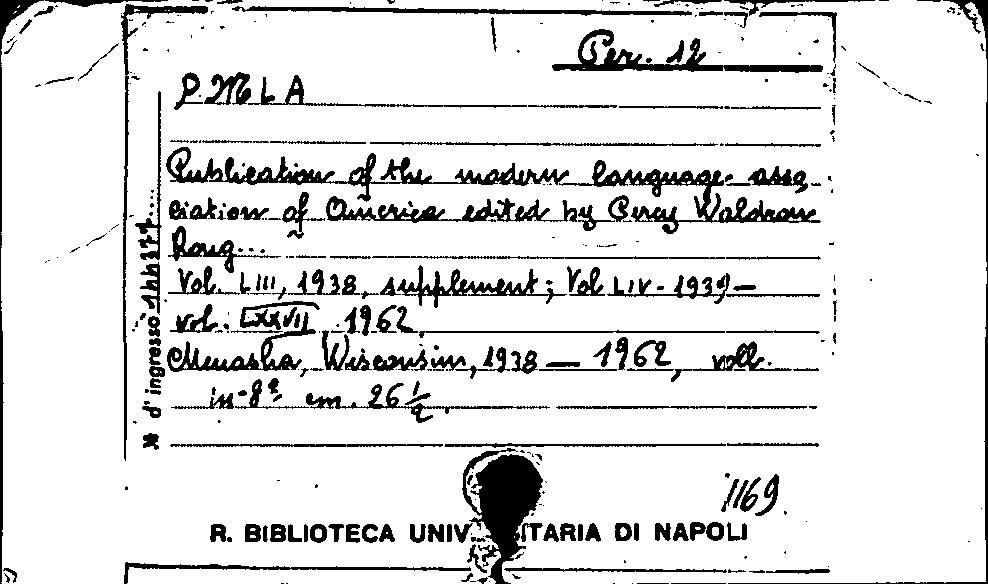 Per. 12
P.M L A
Publication of the modern language asso
ciation of America edited by Percy Waldron
Long...
Vol. LIII, 1938, supplement; Vol LIV - 1939 —
vol. LXXVII 1962.
Menasha, Wisconsin, 1938 — 1962, voll.
in-8º cm. 26 1/2.
N d'ingresso
1169
R. BIBLIOTECA UNIV SITARIA DI NAPOLI